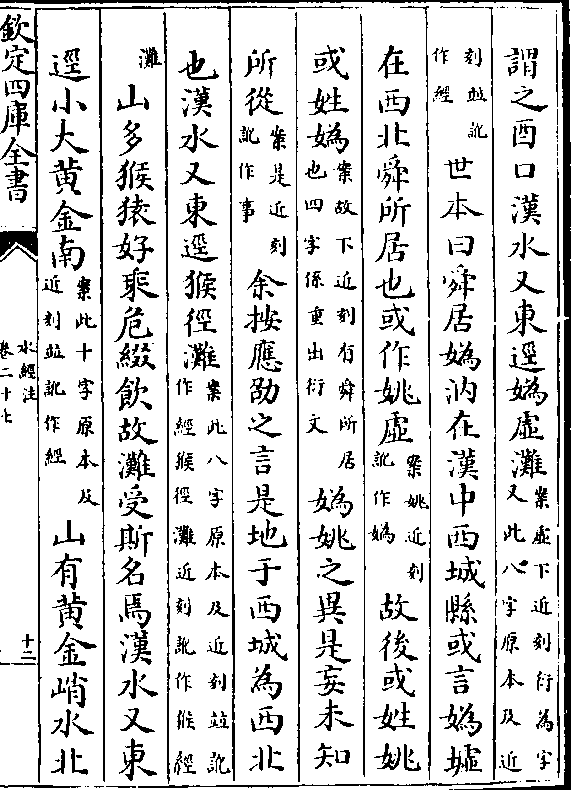 謂之酉口漢水又東逕嬀虛灘案虛下近刻衍為字又此八字原本及近
刻並訛作經世本曰舜居嬀汭在漢中西城縣或言嬀墟
在西北舜所居也或作姚虛案姚近刻訛作嬀故後或姓姚
或姓嬀案故下近刻有舜所居也四字係重出衍文嬀姚之異是妄未知
所從案是近刻訛作事余按應劭之言是地于西城為西北
也漢水又東逕猴徑灘案此八字原本及近刻並訛作經猴徑灘近刻訛作猴經
灘山多猴猿好乘危綴飲故灘受斯名焉漢水又東
逕小大黃金南案此十字原本及近刻並訛作經山有黃金峭水北
欽定四庫全書
水經注
卷二十七
十二